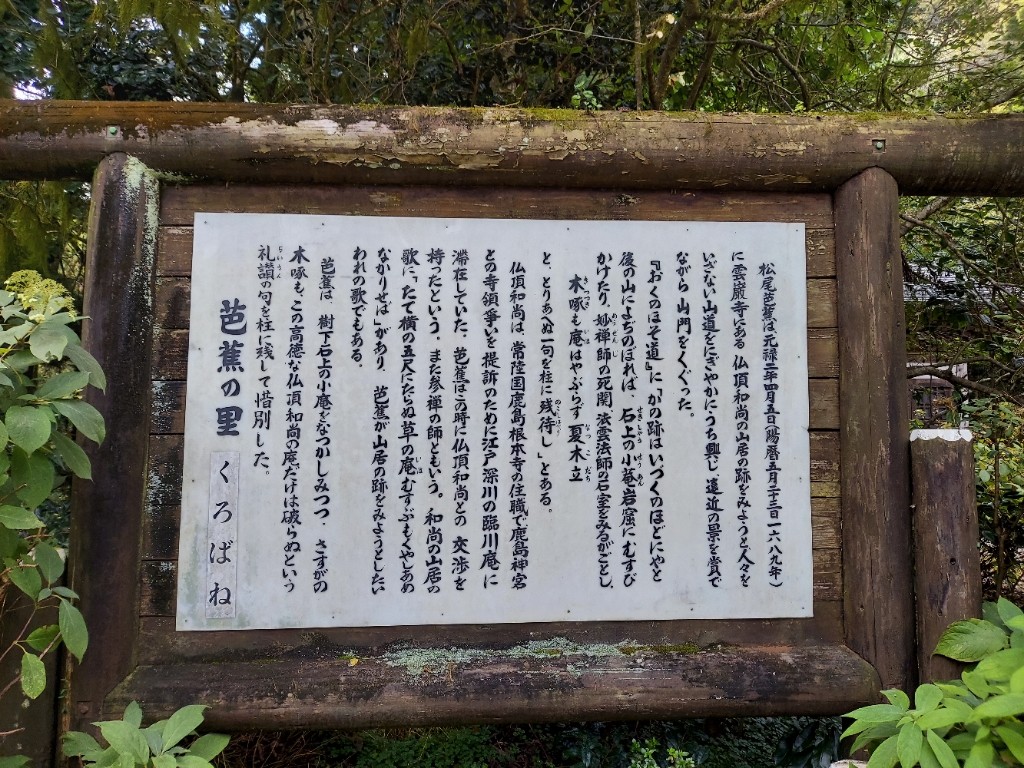 松尾芭蕉は元禄二年四月五日(陽暦五月二十三日一六八九年)
に雲巌寺にある 仏頂和尚の山居の跡をみようと人々を
いざない山道をにぎやかにうち興じ 遠近の景を賞で
ながら 山門をくぐった。
『おくのほそ道』に「かの跡はいづくのほどにやと
後の山によぢのぼれば、石上の小菴岩窟にむすび
かけたり、妙禅師の死関 法雲法師の石室をみるがごとし、
木啄も庵はやぶらず夏木立
と、とりあへぬ一句を柱に残待し」とある。
仏頂和尚は、常陸国鹿島根本寺の住職で鹿島神宮
との寺領争いを提訴のために江戸深川の臨川庵に
滞在していた。芭蕉はこの時に仏頂和尚との 交渉を
持ったという。また参禅の師ともいう。 和尚の山居の
歌に、「たて横の五尺にたらぬ草の庵むすぶもくやしあめ
なかりせば」があり、 芭蕉が山居の跡をみようとしたい
われの歌でもある。
芭蕉は、 樹下石上の小庵をなつかしみつつ、さすがの
木啄も、この高徳な仏頂和尚の庵だけは破らぬという
礼讃の句を柱に残して惜別した。
芭蕉の里 くろばね